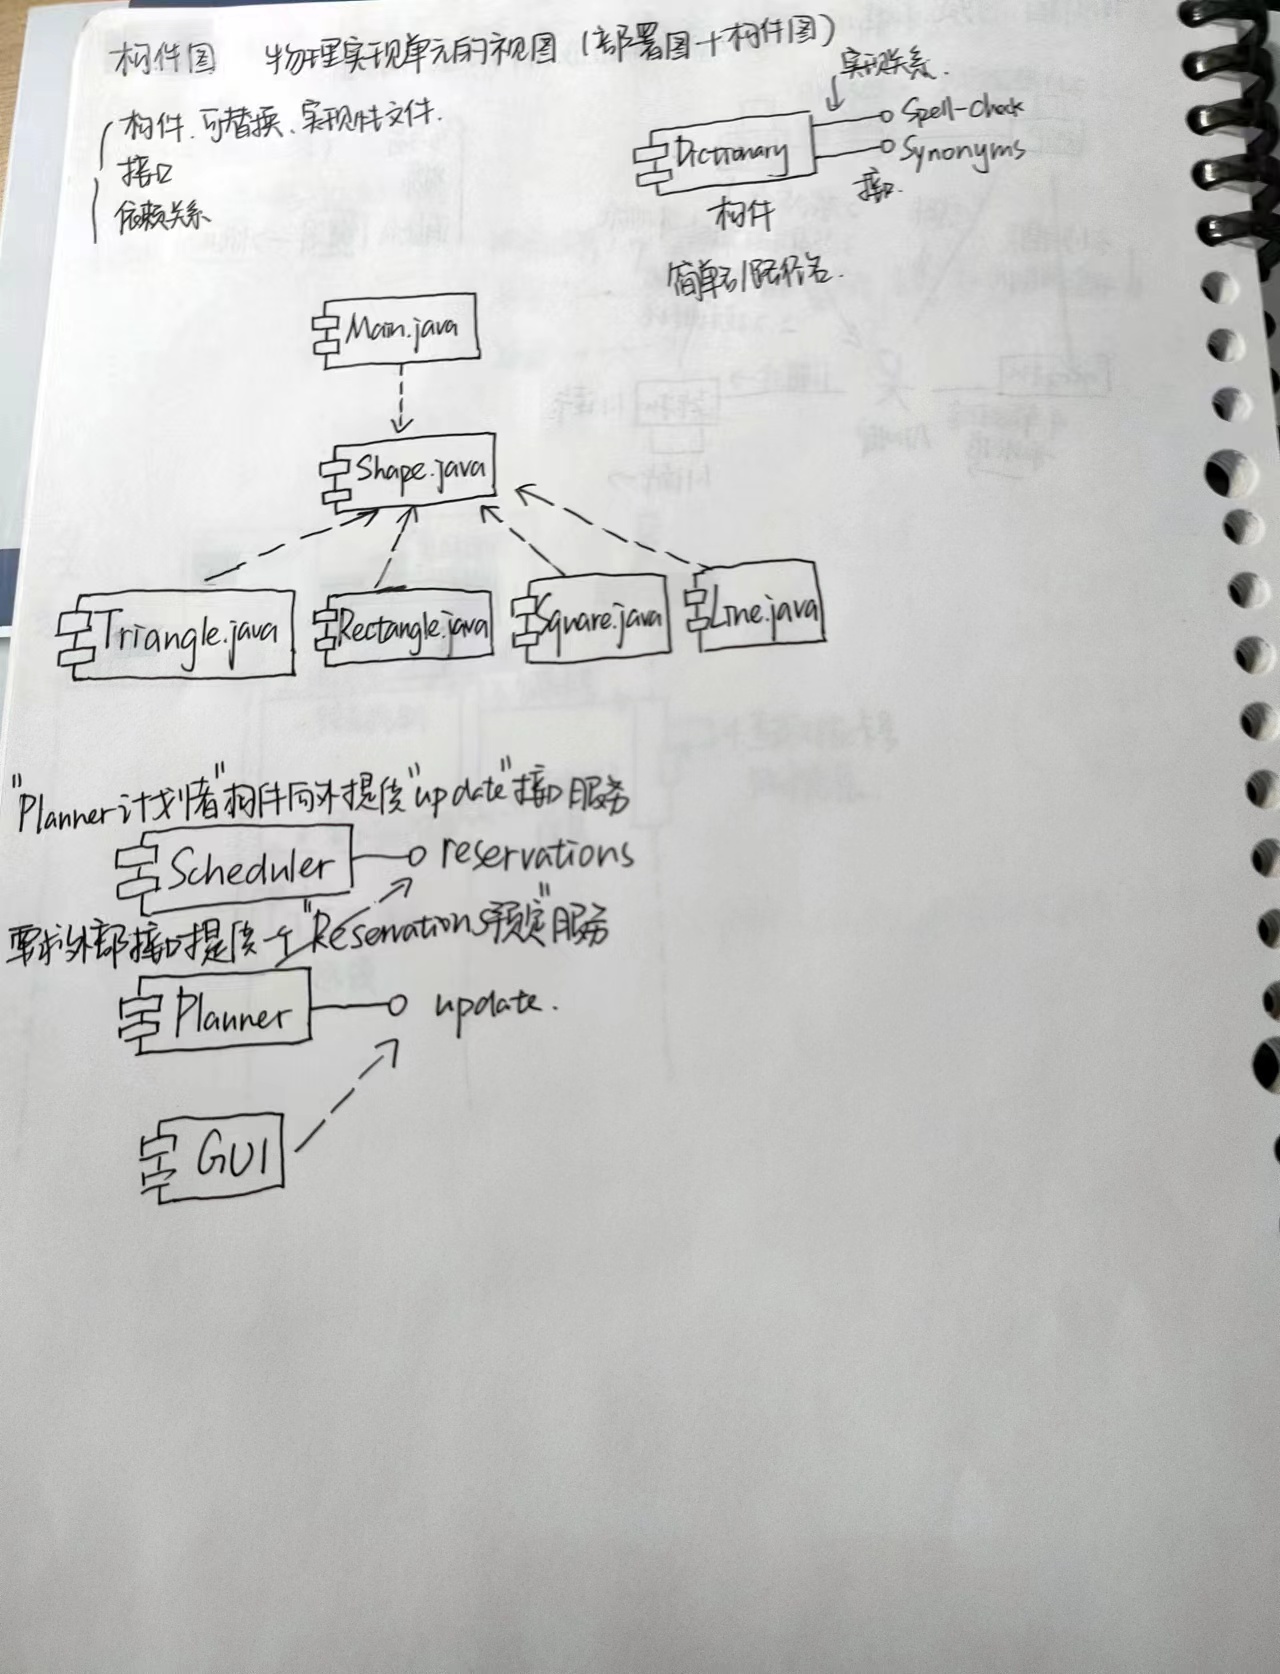 构件图 物理实现单元的视图（部署图+构件图）
构件、可替换、实现性文件.
接口
依赖关系
实现关系.
Dictionary
Spell-check
Synonyms
接口.
构件
简单名/路径名.
Main.java
Shape.java
Triangle.java
Rectangle.java
Square.java
Line.java
"Planner计划者"构件向外提供"update"接口服务
Scheduler
reservations
要求外部接口提供一个"Reservations预定"服务
Planner
update.
GUI